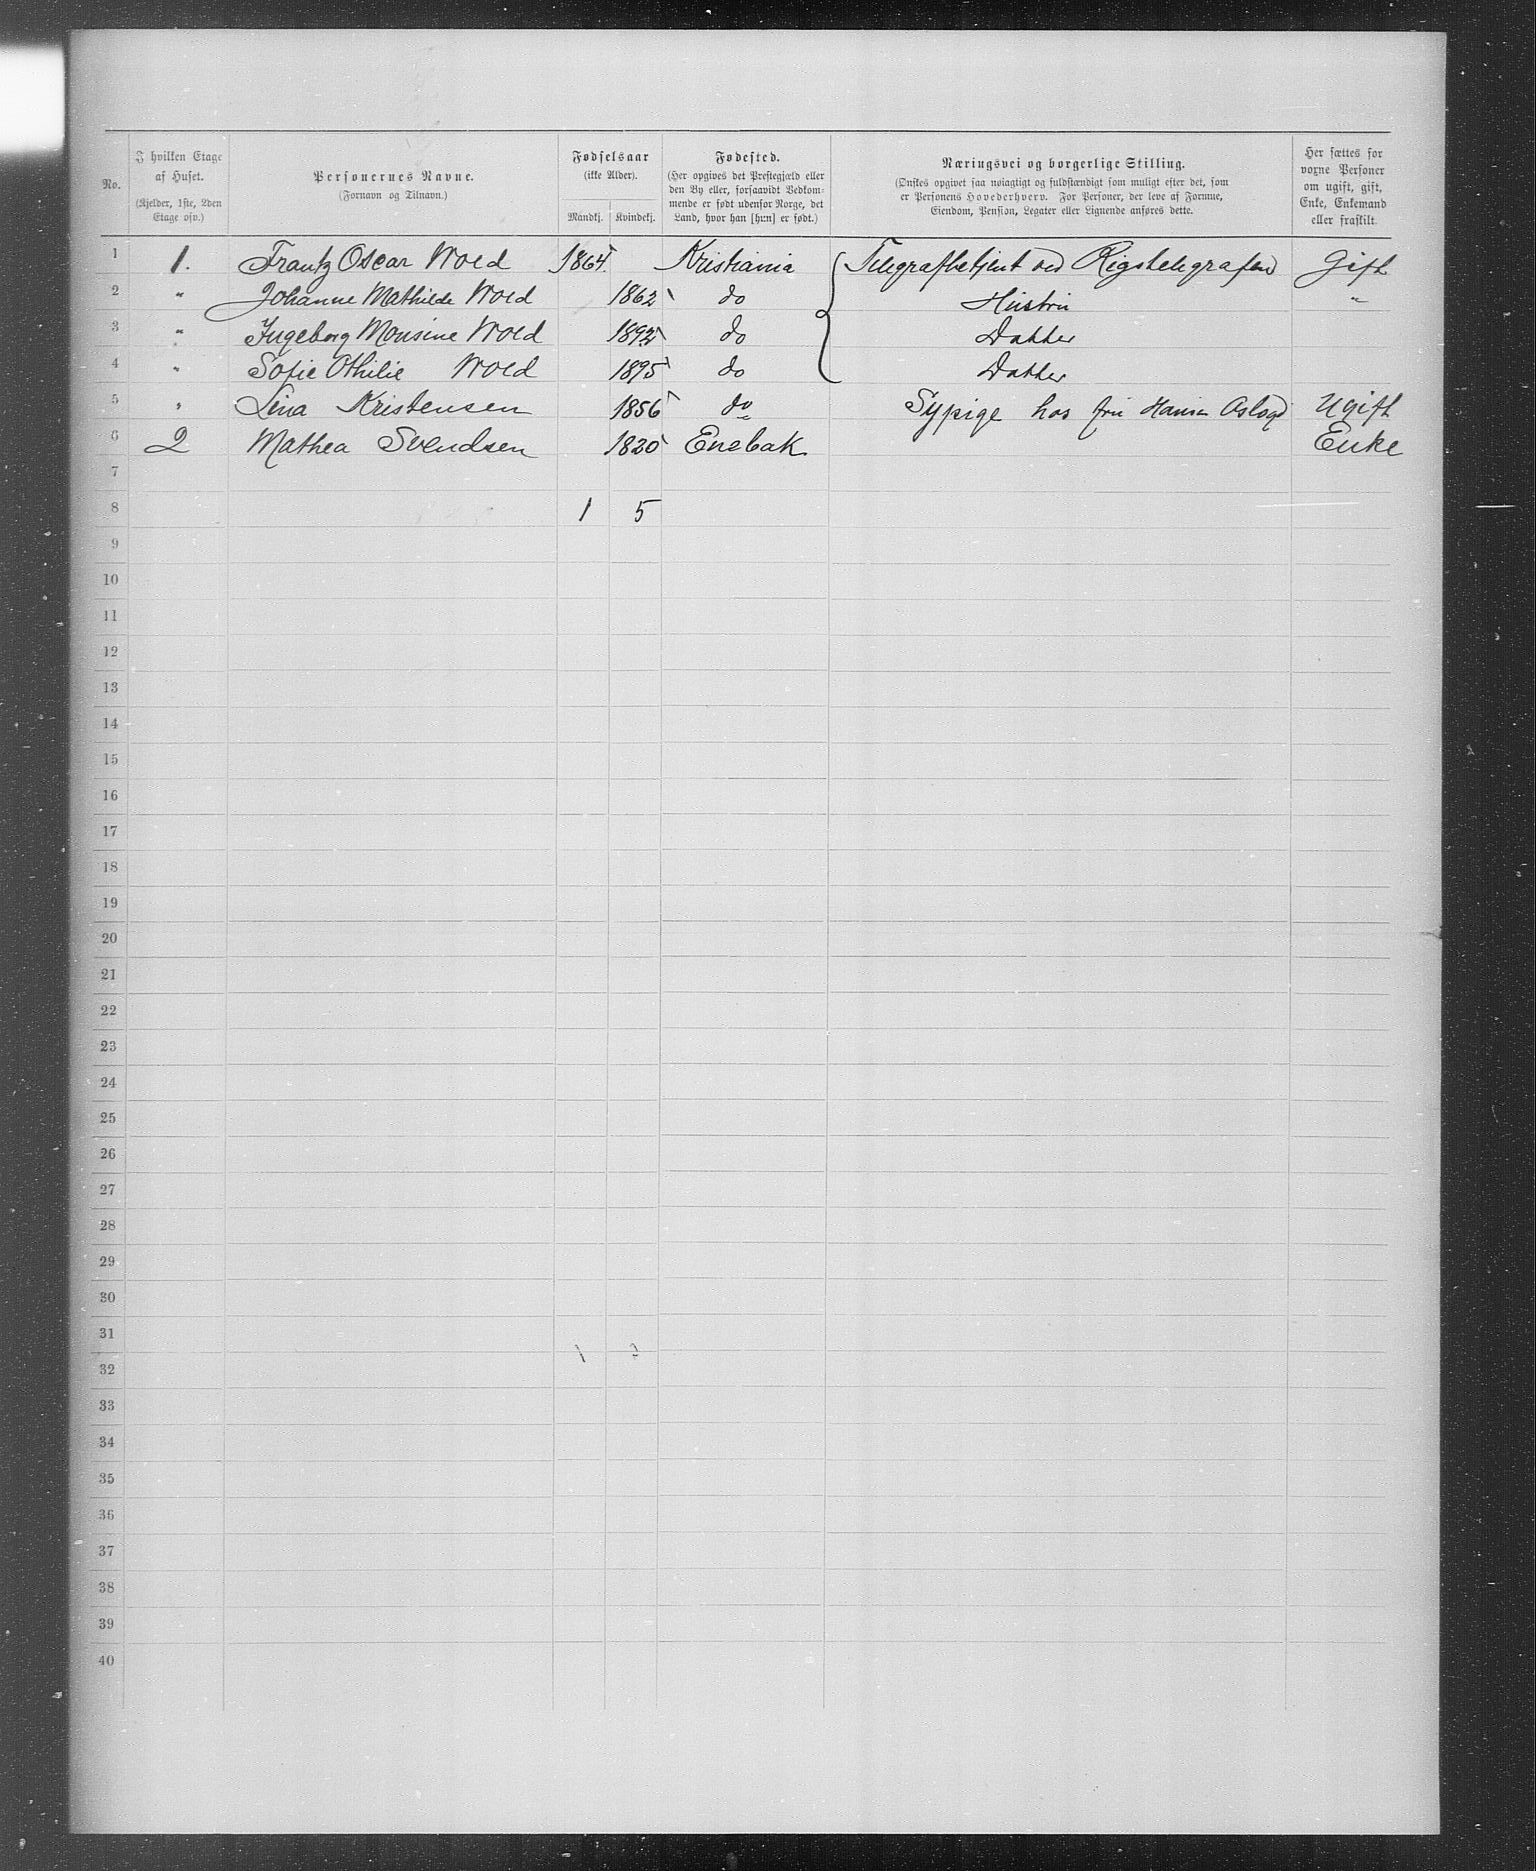 No.
I hvilken Etage af Huset. (Kjelder, 1ste, 2den Etage osv.)
Personernes Navne. (Fornavn og Tilnavn.)
Fødselsaar (ikke Alder). Mandkj. Kvindekj.
Fødested. (Her opgives det Prestegjæld eller den By eller, forsaavidt Vedkommende er født udenfor Norge, det Land, hvor han [hun] er født.)
Næringsvei og borgerlige Stilling. (Ønskes opgivet saa nøiagtigt og fuldstændigt som muligt efter det, som er Personens Hovederhverv. For Personer, der leve af Formue, Eiendom, Pension, Legater eller Lignende anføres dette.
Her sættes for voxne Personer om ugift, gift, Enke, Enkemand eller fraskilt.
1 1. Frantz Oscar Wold 1864 Kristiania Telegrafbetjent ved Rigstelegrafen Gift
2 " Johanne Mathilde Wold 1862 do Hustru "
3 " Ingeborg Monsine Wold 1892 do Datter
4 " Sofie Othilie Wold 1895 do Datter
5 " Lina Kristensen 1856 do Sypige hos fru Hansen Aslogd Ugift
6 2 Mathea Svendsen 1820 Enebak Enke
7
8 1 5
9
10
11
12
13
14
15
16
17
18
19
20
21
22
23
24
25
26
27
28
29
30
31
32
33
34
35
36
37
38
39
40